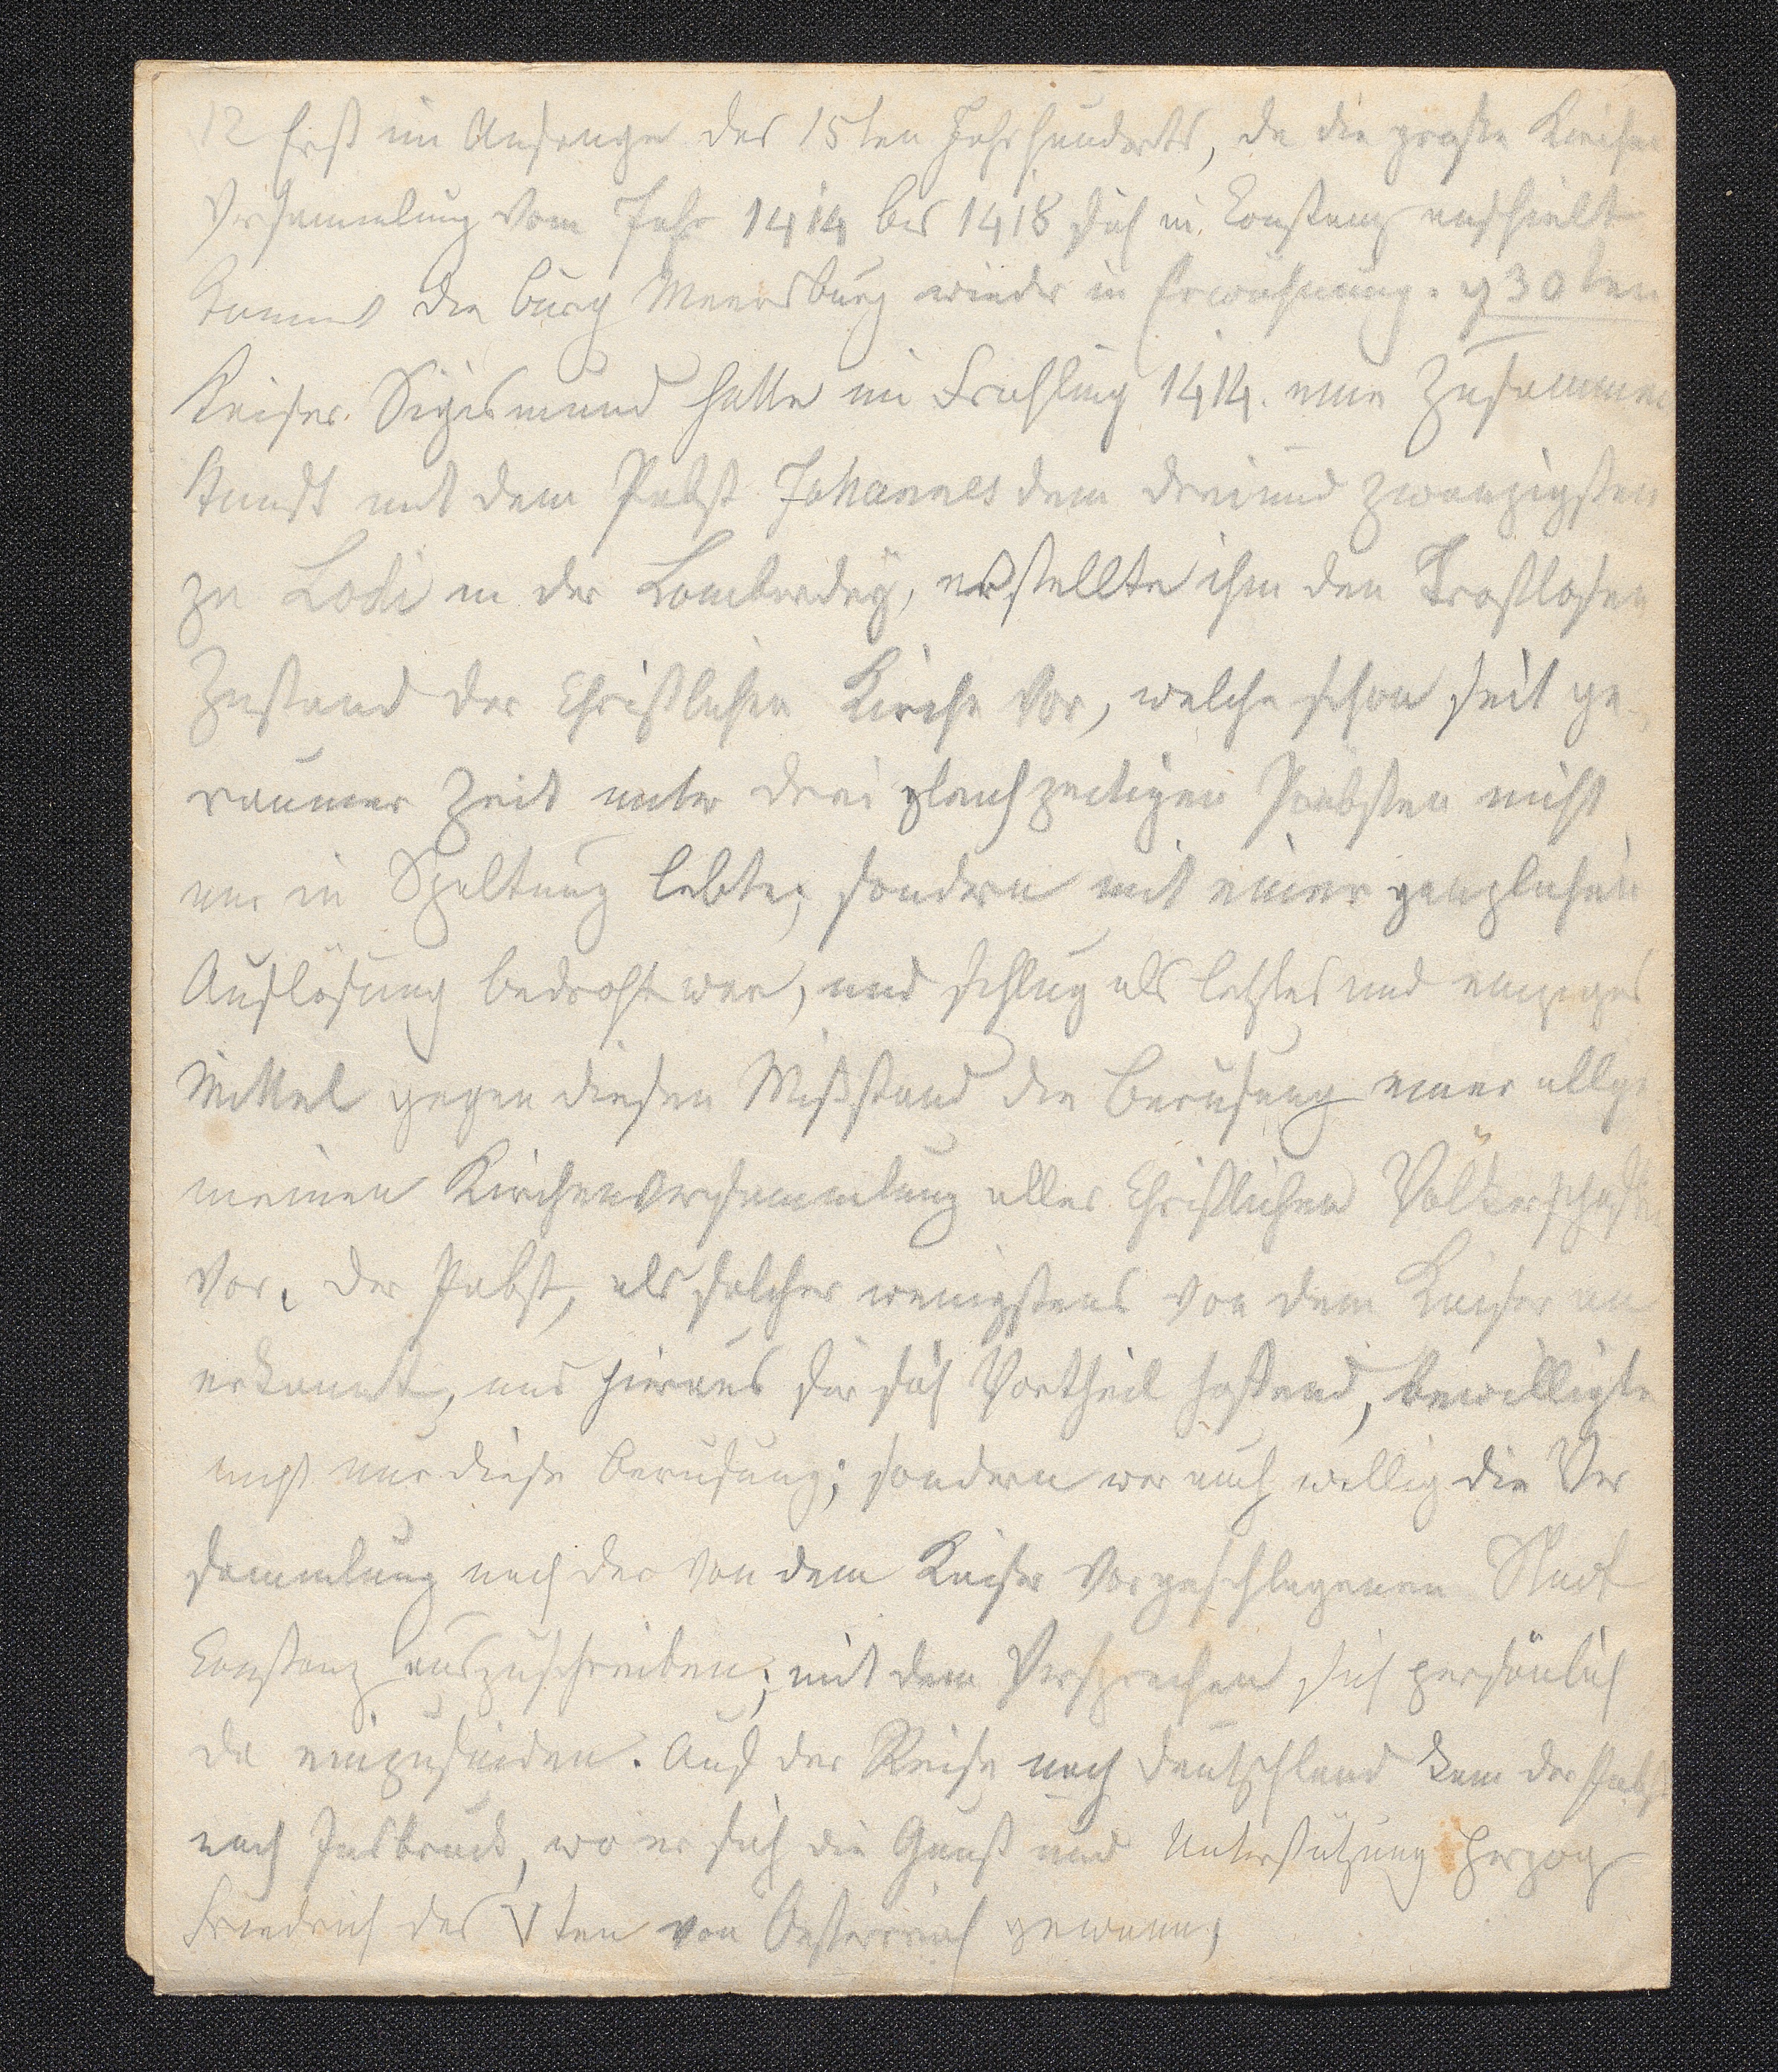 12 Erst im Anfange des 15ten Jahrhunderts, da die große Kirchen
Versammlung vom Jahr 1414 bis 1418 sich in Constanz aufhielt
kommt die Burg Meersburg wieder in Erwähnung. 30ten
Kaiser Sigismund hatte im Frühling 1414. eine Zusammen
kunft mit dem Pabst Johannes dem dreiund zwanzigsten
zu Lodi in der Lombardey, er stellte ihm den Trostlosen
Zustand der Christlichen Kirche vor, welche schon seit ge-
raumer Zeit unter drei gleichzeitigen Päbsten nicht
nur in Spaltung lebte; sondern mit einer gänzlichen
Auflösung bedroht war, und schlug als letztes und einziges
Mittel gegen diesen Mißstand die Berufung einer allge
meinen Kirchenversammlung aller Christlichen Völkerschaften
vor. Der Pabst, als solcher wenigstens von dem Kaiser an
erkannt, und hieraus für sich Vortheil hoffend, bewilligte
nicht nur diese Berufung; sondern war auch willig die Ver
sammlung nach der von dem Kaiser vorgeschlagenen Stadt
Constanz auszuschreiben; mit dem Versprechen sich persönlich
da einzufinden. Auf der Reise nach Deutschland kam der Pabst
nach Insbruck, wo er sich die Gunst und Unterstützung Herzog
Friedrich des Vten von Oesterreich gewann;